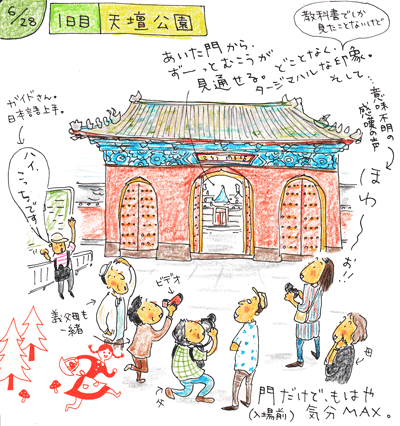 6/28
1日目 天壇公園
教科書でしか
見たことないけど
あいた門から、
ずーっとむこうが
見通せる。
どことなく、
タージマハルな印象。
そして…
意味不明の
感嘆の声
ほわ〜
お!!
ガイドさん。
日本語上手。
ハイ、
こっちです
義父母も
一緒
ビデオ
父
母
門だけで、もはや
(入場前) 気分MAX。